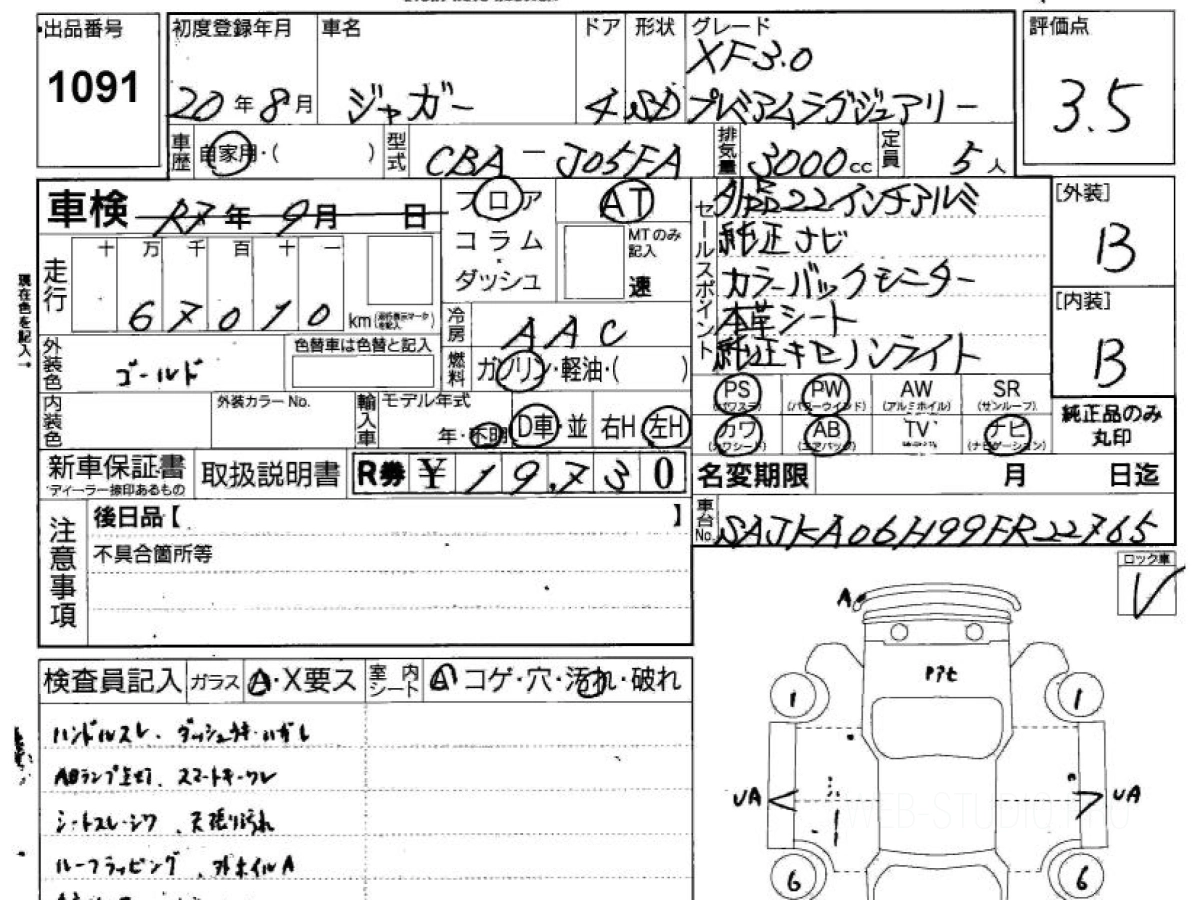 出品番号
1091
初度登録年月
20年8月
車名
ジャガー
ドア
4
形状
SD
グレード
XF3.0
プレミアムラグジュアリー
評価点
3.5
車歴
自家用・( )
型式
CBA-J05FA
排気量
3000cc
定員
5人
車検 R7年9月 日
フロア
コラム
ダッシュ
AT
MTのみ記入
速
セールスポイント
外品22インチアルミ
純正ナビ
カラーバックモニター
本革シート
純正キセノンライト
[外装]
B
[内装]
B
現在色を記入→
走行
十 万 千 百 十 一
6 7 0 1 0 km
冷房
AAC
燃料
ガソリン・軽油・( )
外装色
ゴールド
色替車は色替と記入
内装色
外装カラーNo.
輸入車
モデル年式
年・不明
D車・並
右H 左H
PS
(パワステ)
PW
(パワーウインド)
AW
(アルミホイル)
SR
(サンルーフ)
カワ
(カワシート)
AB
(エアバッグ)
TV
ナビ
(ナビゲーション)
純正品のみ
丸印
新車保証書
ディーラー捺印あるもの
取扱説明書
R券 ¥ 19,730
名変期限 月 日迄
車台No.
SAJKA06H99FR22765
注意事項
後日品【 】
不具合箇所等
ロック車
A
検査員記入
ガラス
A・X要ス
室内シート
A コゲ・穴・汚れ・破れ
ハンドルスレ、ダッシュウキ・ハガレ
ABランプ点灯、スマートキーワレ
シートスレ・シワ、天張り汚れ
ルーフラッピング、外ホイルA
Pアセ
1
1
UA
UA
6
6
WEB-STUDIO PRO